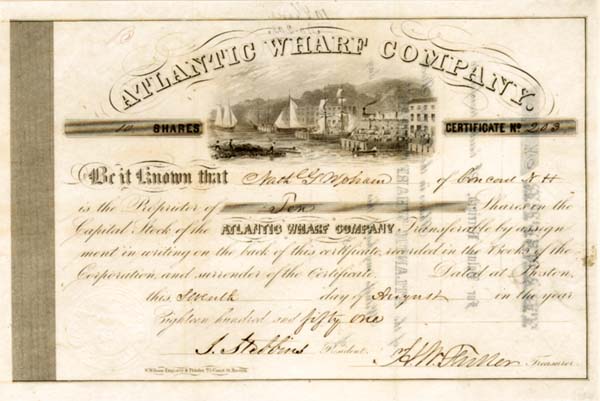 ATLANTIC WHARF COMPANY.
10 SHARES
CERTIFICATE No 203
Be it Known that Nathl G Upham of Concord N H
is the Proprietor of Ten Shares in the
Capital Stock of the ATLANTIC WHARF COMPANY Transferable by assign-
ment in writing on the back of this certificate recorded in the Books of the
Corporation and surrender of the Certificate. Dated at Boston,
this Seventh day of August in the year
Eighteen hundred and fifty one
J. Stebbins President. Treasurer.